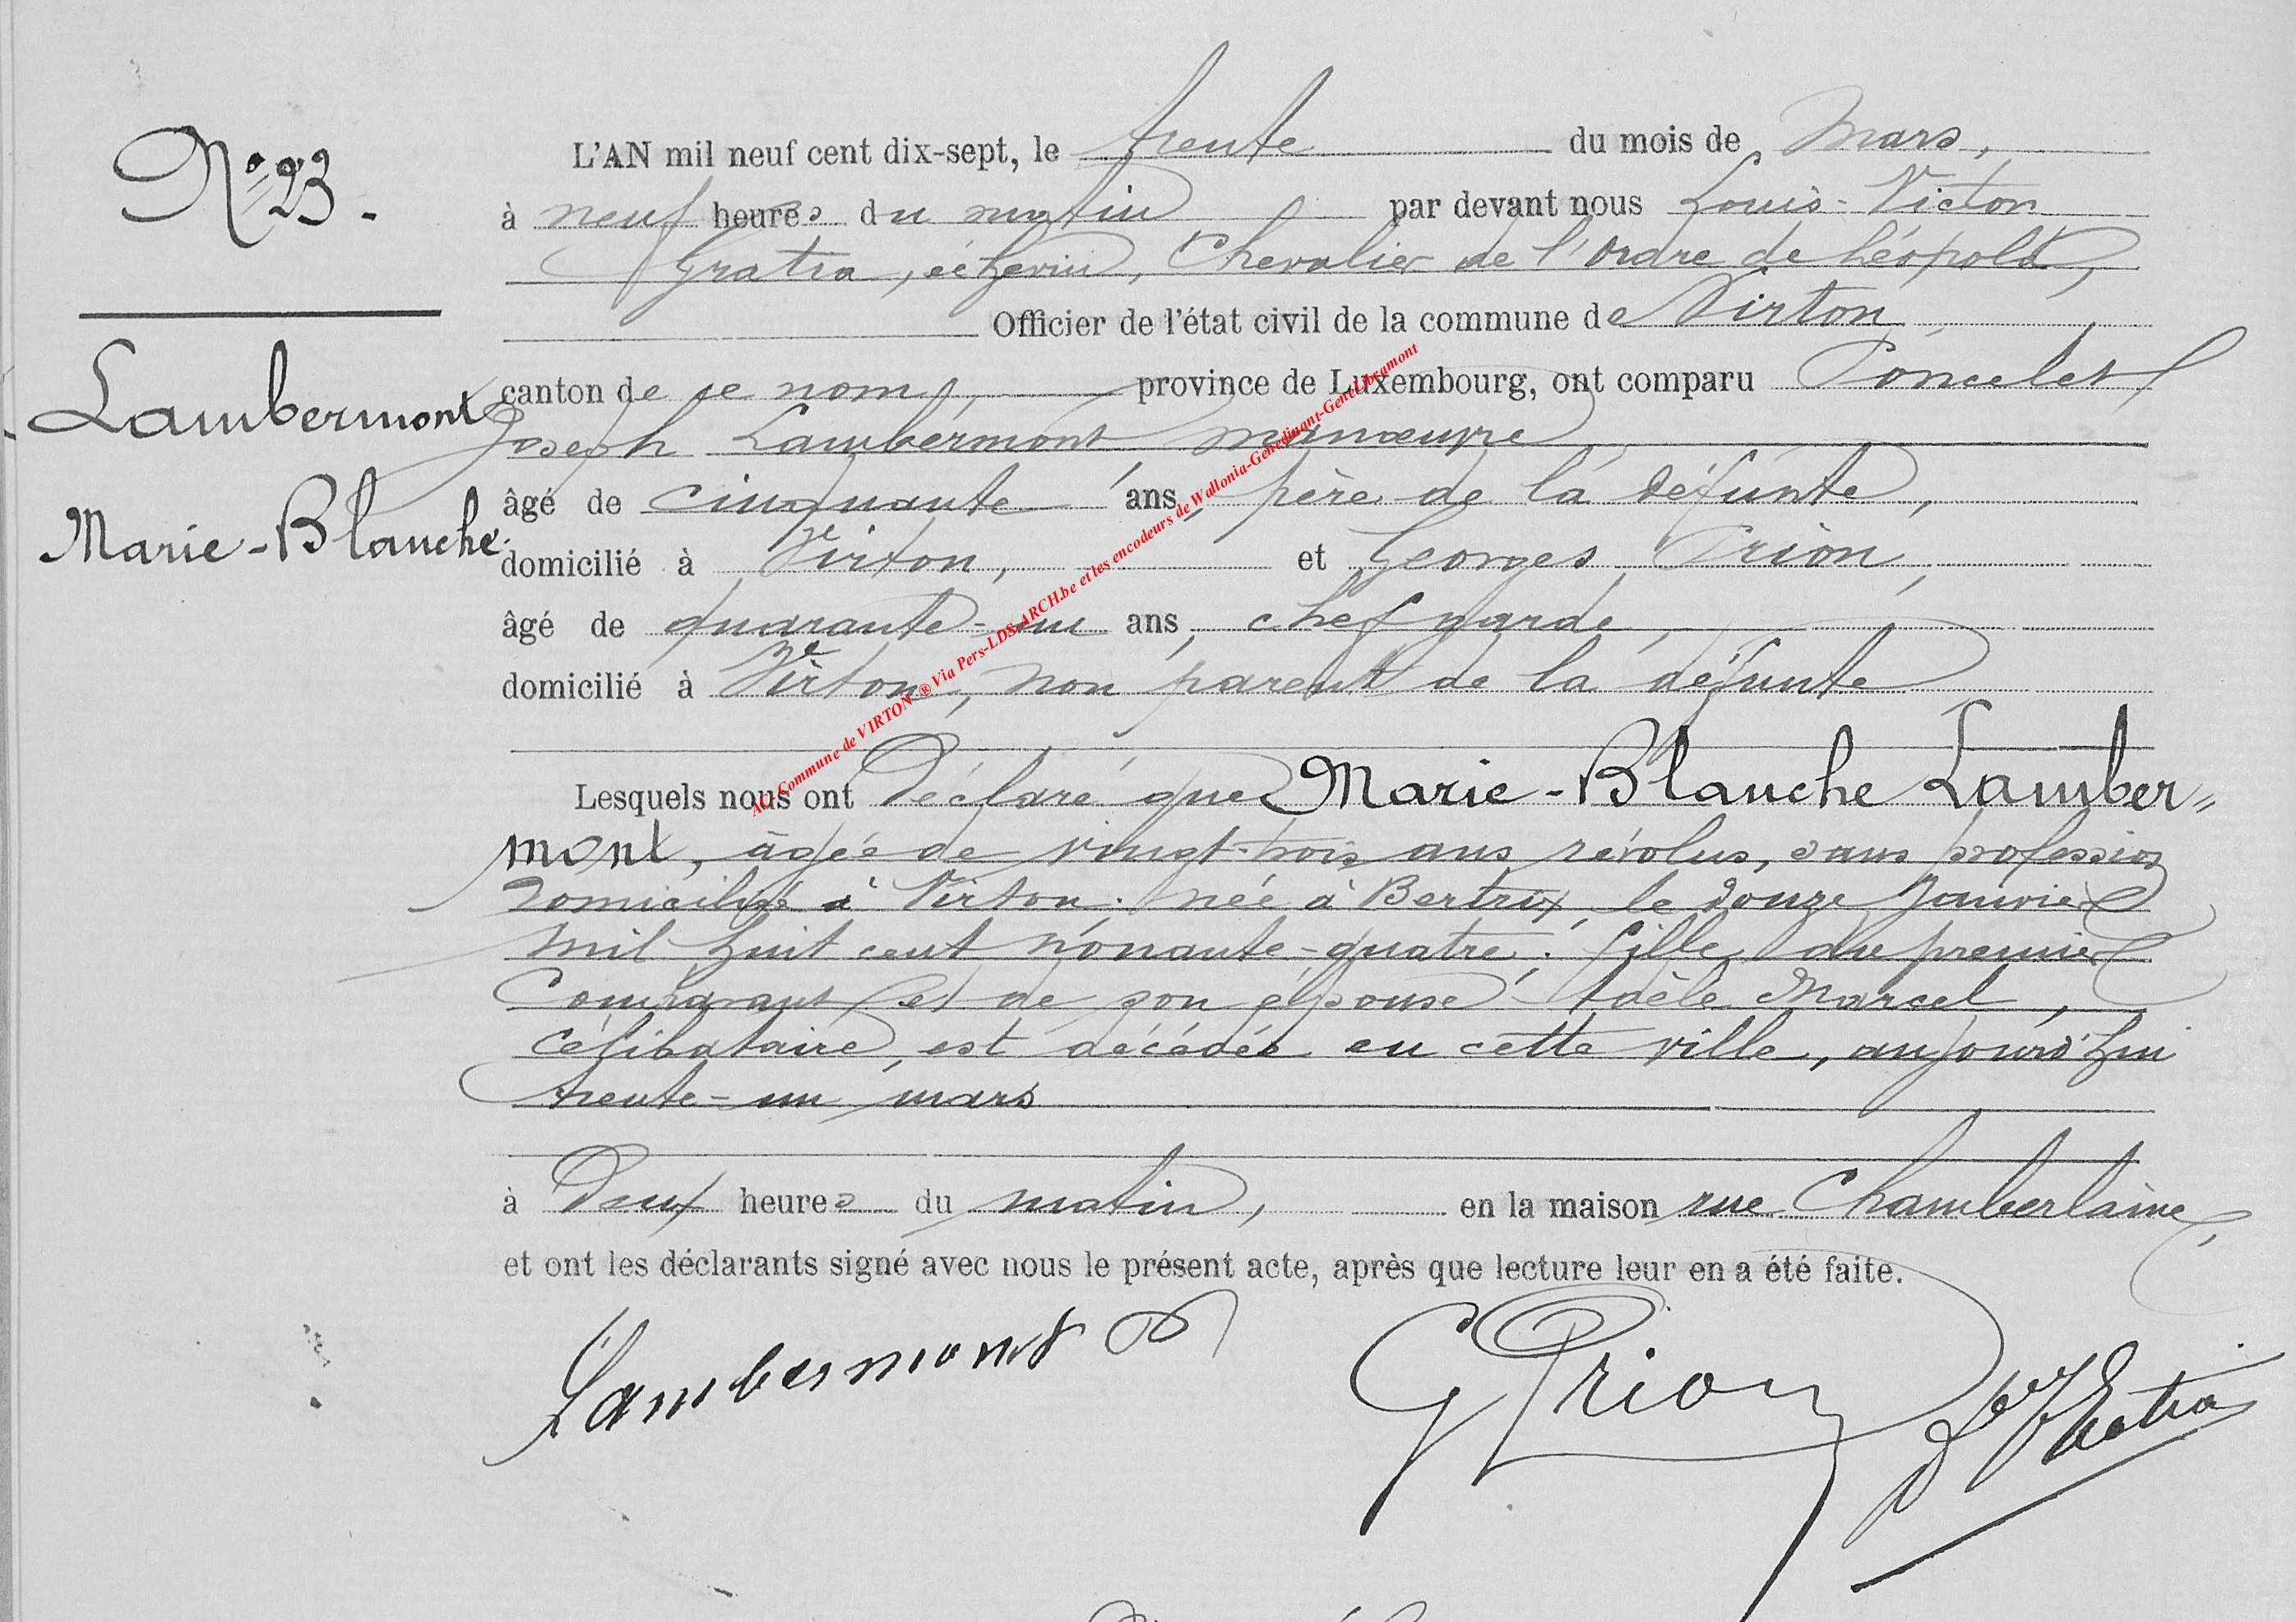 Nº 23.
L'AN mil neuf cent dix-sept, le trente du mois de Mars,
à neuf heures du matin par devant nous Louis-Victor
Gratia, échevin, Chevalier de l'Ordre de Léopold,
Officier de l'état civil de la commune de Virton,
canton de ce nom, province de Luxembourg, ont comparu Poncelet
Lambermont
Joseph Lambermont manœuvre
âgé de cinquante ans, père de la défunte,
Marie-Blanche.
domicilié à Virton, et Georges Prion,
âgé de quarante-un ans, chef garde,
domicilié à Virton, non parent de la défunte
Lesquels nous ont Déclaré que Marie-Blanche Lamber=
mont, âgée de vingt-trois ans révolus, sans profession
domiciliée à Virton. née à Bertrix, le douze Janvier
mil huit cent nonante-quatre; fille du premier
Comparant et de son épouse Adèle Marcel,
célibataire, est décédée en cette ville, aujourd'hui
trente-un mars
à Deux heures du matin, en la maison rue Chamberlaine,
et ont les déclarants signé avec nous le présent acte, après que lecture leur en a été faite.
Lambermont G Prion LV Gratia
AC Commune de VIRTON ® Via Pers-LDS-ARCH.be et les encodeurs de Wallonia-Genedinant-GeneLibramont